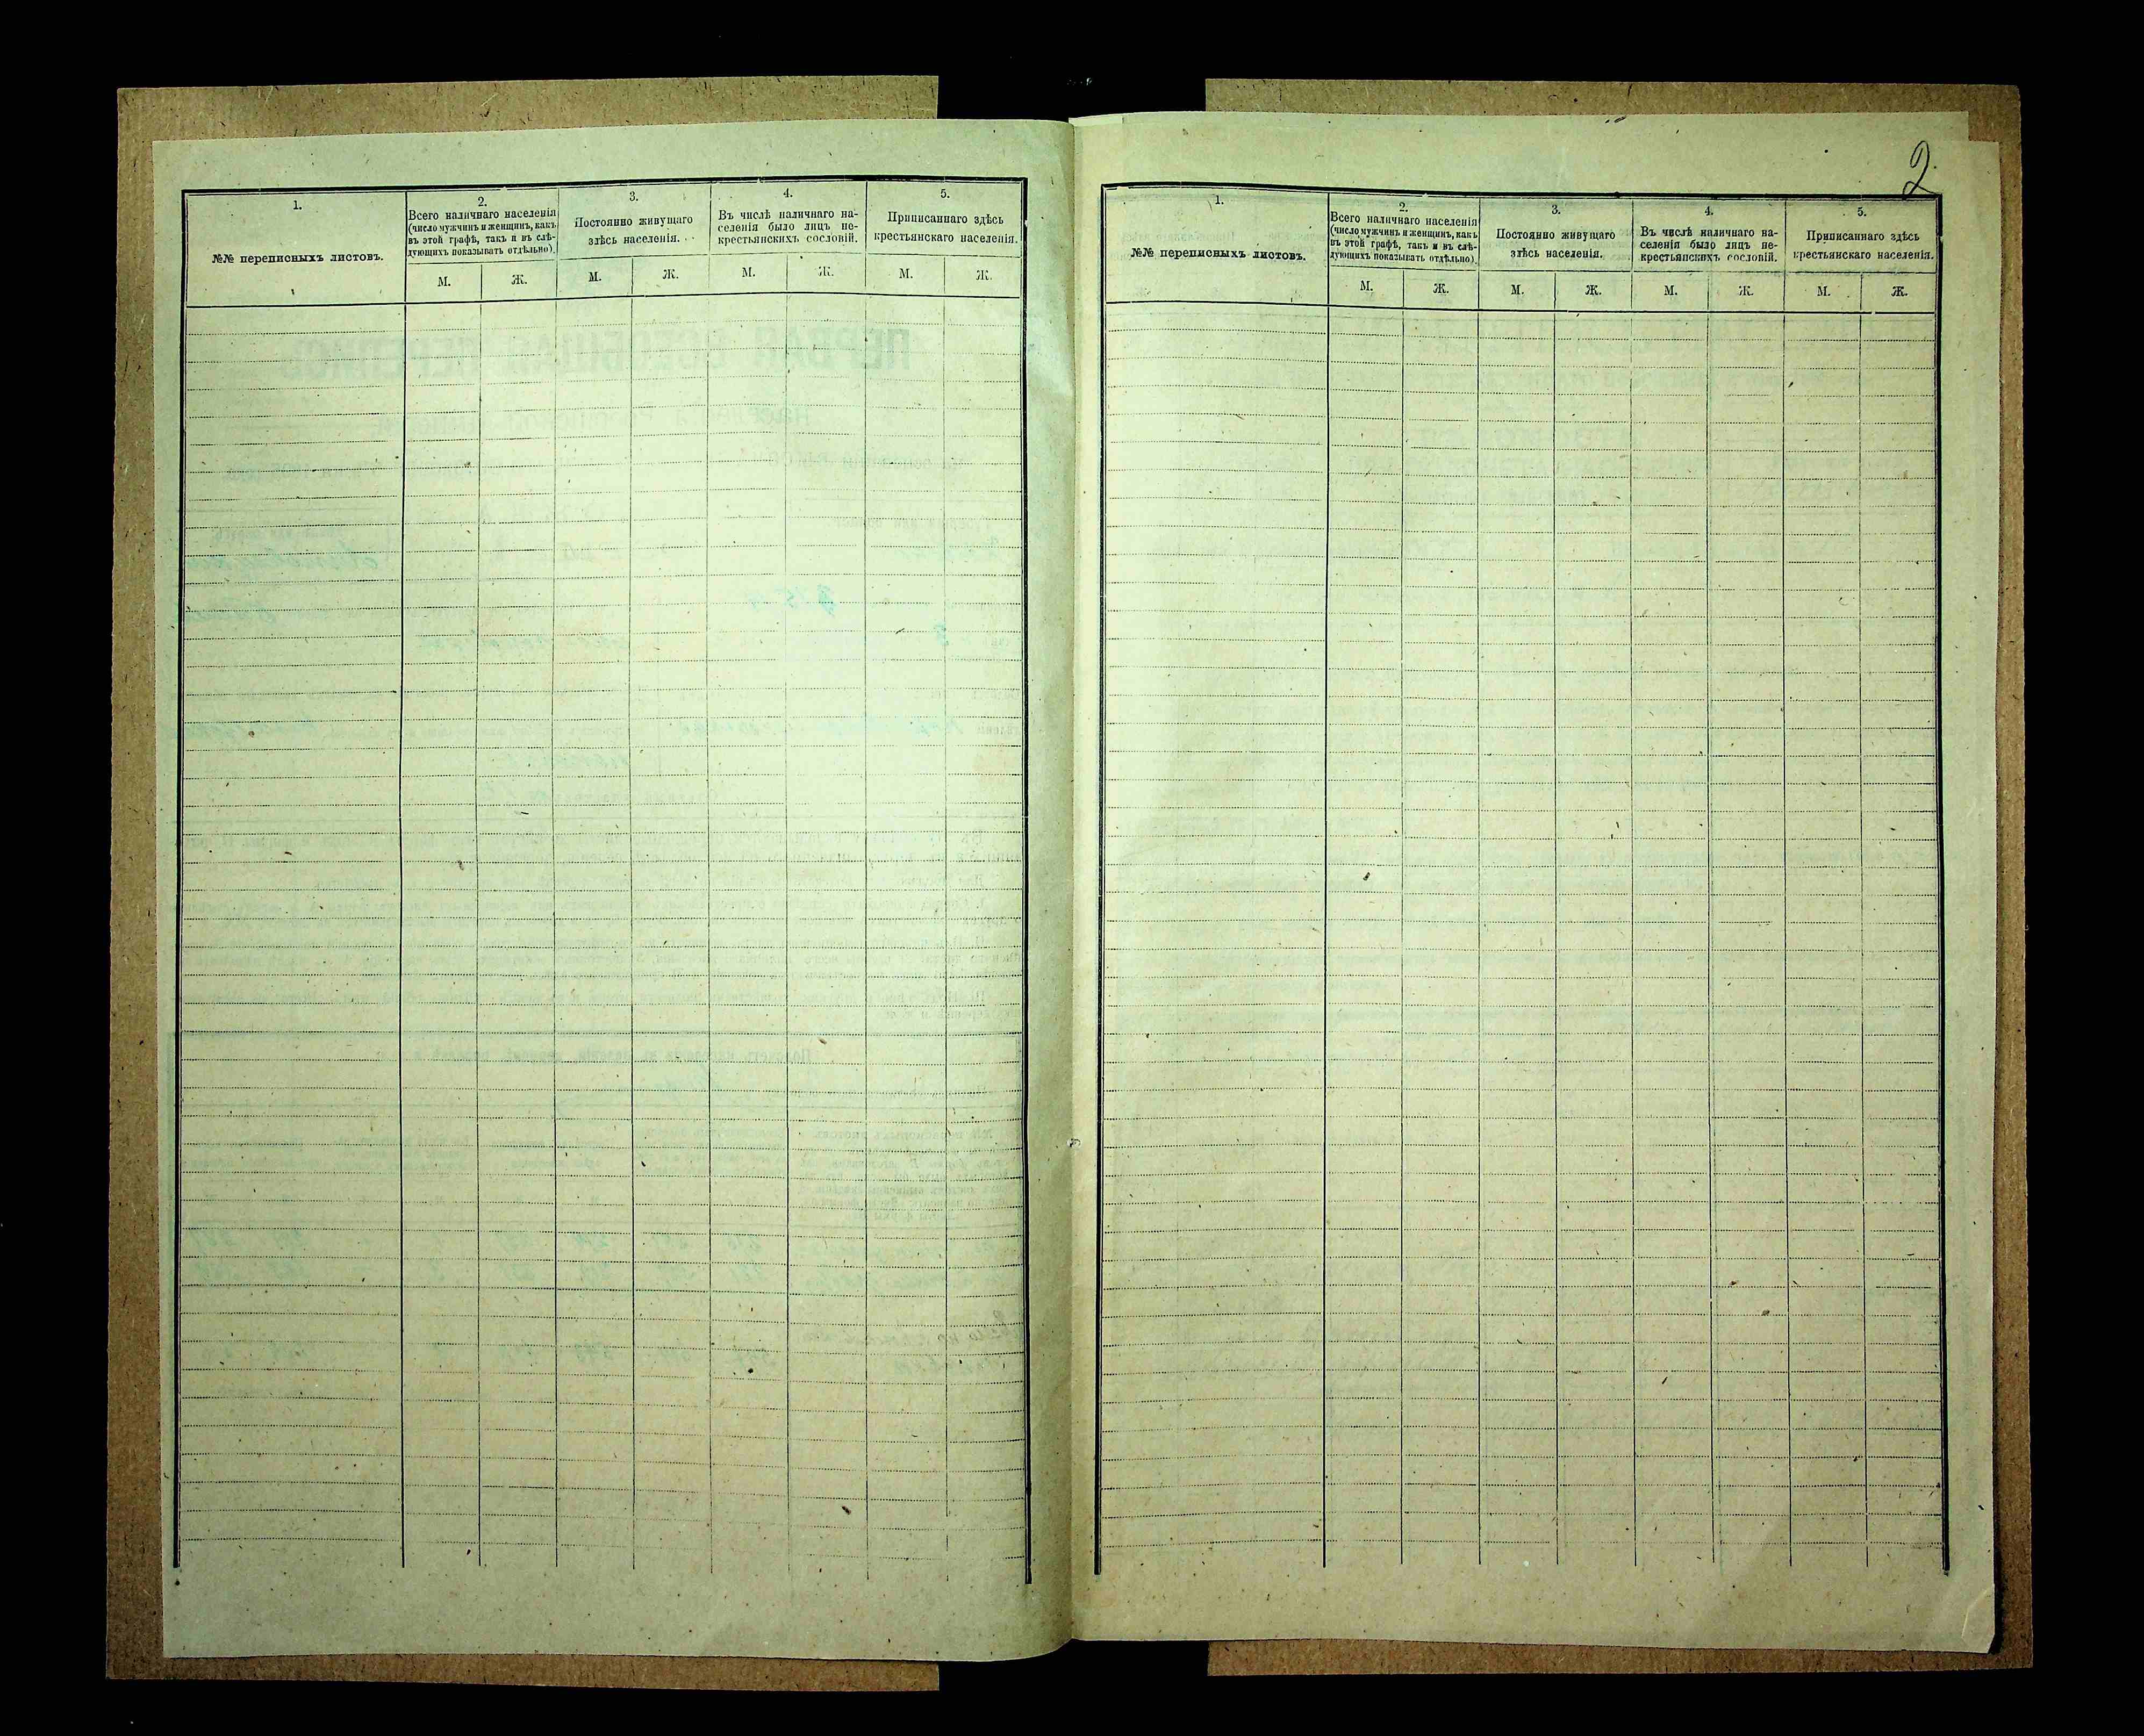 1.
№№ переписныхъ листовъ.
2.
Всего наличнаго населенія
(число мужчинъ и женщинъ, какъ
въ этой графѣ, такъ и въ слѣ-
дующихъ показывать отдѣльно).
М. Ж.
3.
Постоянно живущаго
здѣсь населенія.
М. Ж.
4.
Въ числѣ наличнаго на-
селенія было лицъ не-
крестьянскихъ сословій.
М. Ж.
5.
Приписаннаго здѣсь
крестьянскаго населенія.
М. Ж.
2
1.
№№ переписныхъ листовъ.
2.
Всего наличнаго населенія
(число мужчинъ и женщинъ, какъ
въ этой графѣ, такъ и въ слѣ-
дующихъ показывать отдѣльно).
М. Ж.
3.
Постоянно живущаго
здѣсь населенія.
М. Ж.
4.
Въ числѣ наличнаго на-
селенія было лицъ не-
крестьянскихъ сословій.
М. Ж.
5.
Приписаннаго здѣсь
крестьянскаго населенія.
М. Ж.